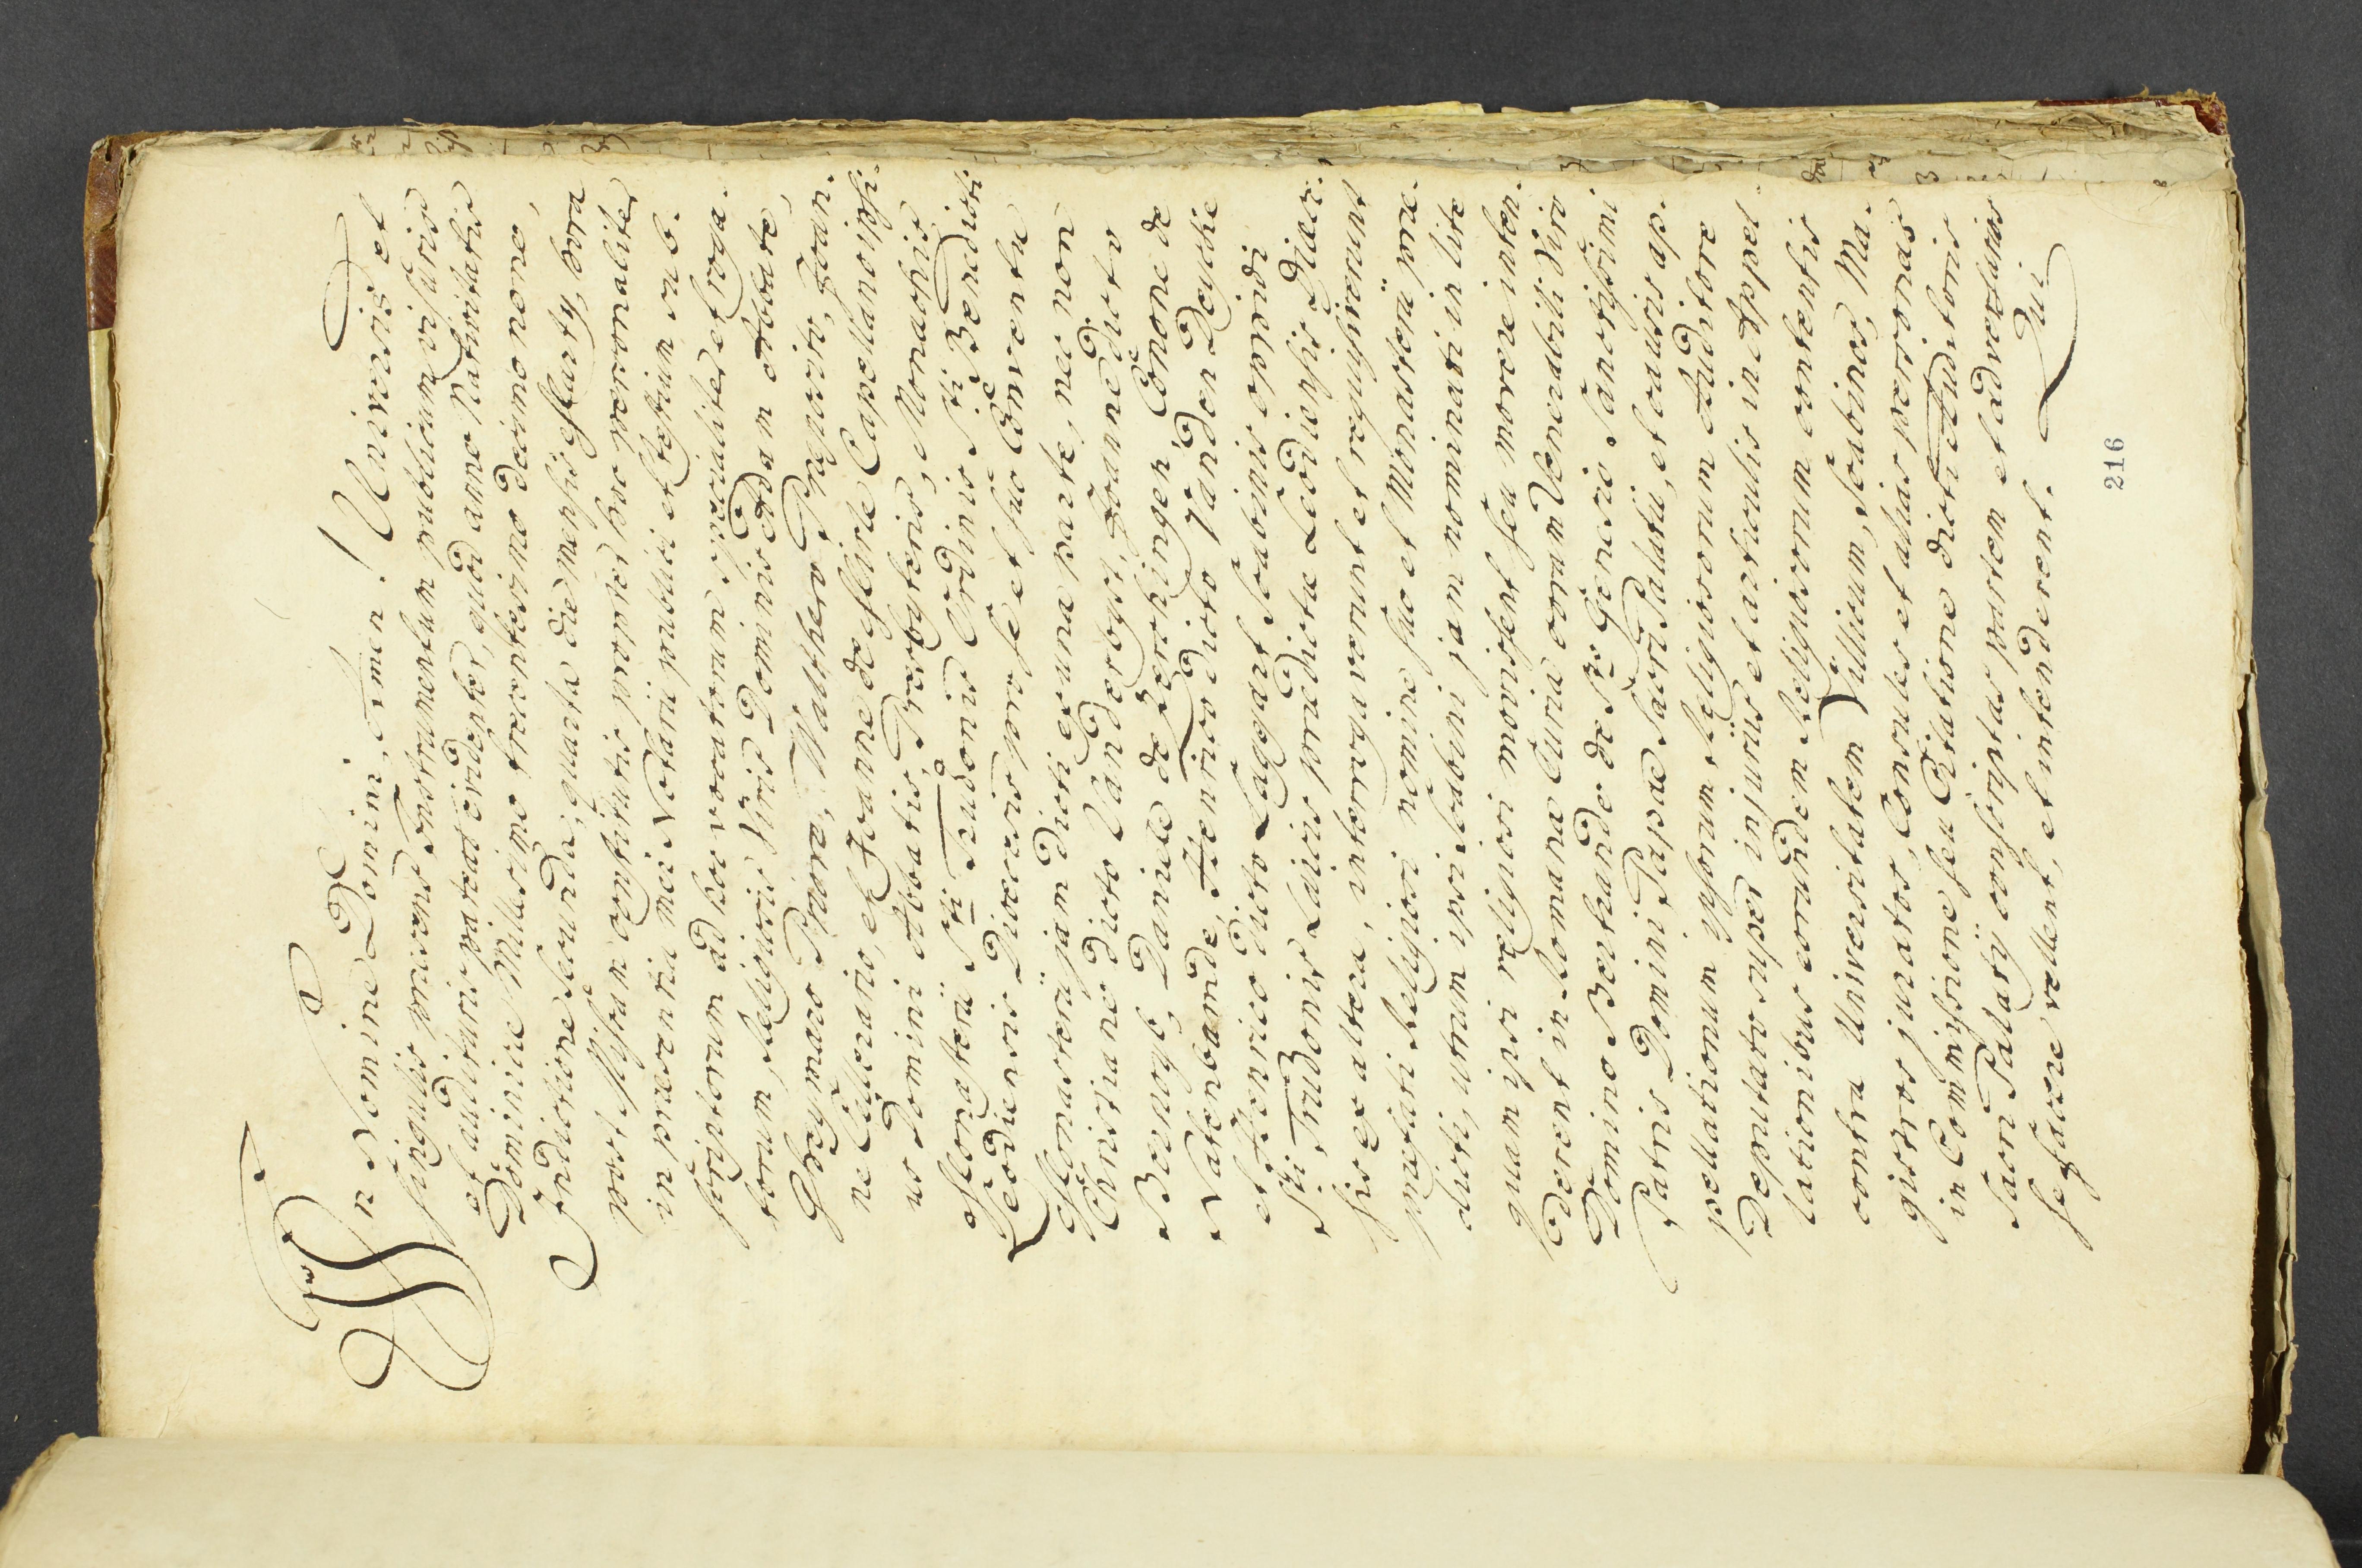 In Nomine Domini, Amen! Universis et
singulis præsens Instrumentum publicum visuris
et audituris pateat evidenter, quòd anno Nativitatis
Dominicæ Millesimo trecentesimo decimo nono,
Indictione secunda, quarta die mensis Marty, hora
post Missam constitutis propter hoc personaliter
in præsentia mei Notarii publici et testium sub-
scriptorum ad hoc vocatorum specialiter et roga-
torum, Religiosis Viris Dominis Adam Abbate,
Greymaro Priore, Walthero Præposito, Joan-
ne Cellerario, et Joanne de Mirle Capellano ipsi-
us Domini Abbatis, Presbyteris, Monachis
Monasterii Sti Trudonis Ordinis Sti Benedicti
Leodiensis Diœcesis pro se et suo Conventu
Monasterii jam dicti ex una parte, nec non
Christiano dicto Vanderogst, Joanne dicto
Boenogt, Daniele de Zerckingen, Conone de
Natenbamde, Henrico dicto Vanden Reyschе
et Henrico dicto Saggart Scabinis oppidi
Sti Trudonis Laicis prædictæ Leodiensis Diœce-
sis ex altera, interrogaverunt et requisiverunt
præfati Religiosi nomine suo et Monasterii præ-
dicti, utrum ipsi Scabini jam nominati in lite
quam ipsi religiosi movissent seu movere inten-
derent in Romana Curia coram Venerabili Viro
Domino Bertrando de Sto Genesio Sanctissimi
Patris Domini Papæ Sacri Palatii, et causis ap-
pellationum ipsorum Religiosorum Auditore
Deputato super injuriis et articulis in Appel-
lationibus eorundem Religiosorum contentis
contra Universitatem Villicum, Scabinos, Ma-
gistros juratos, Consules et alias personas
in Commissione seu Citatione dicti Auditoris
Sacri Palatij conscriptas partem et adversarios
se facere vellent, et intenderent.
Qui
216